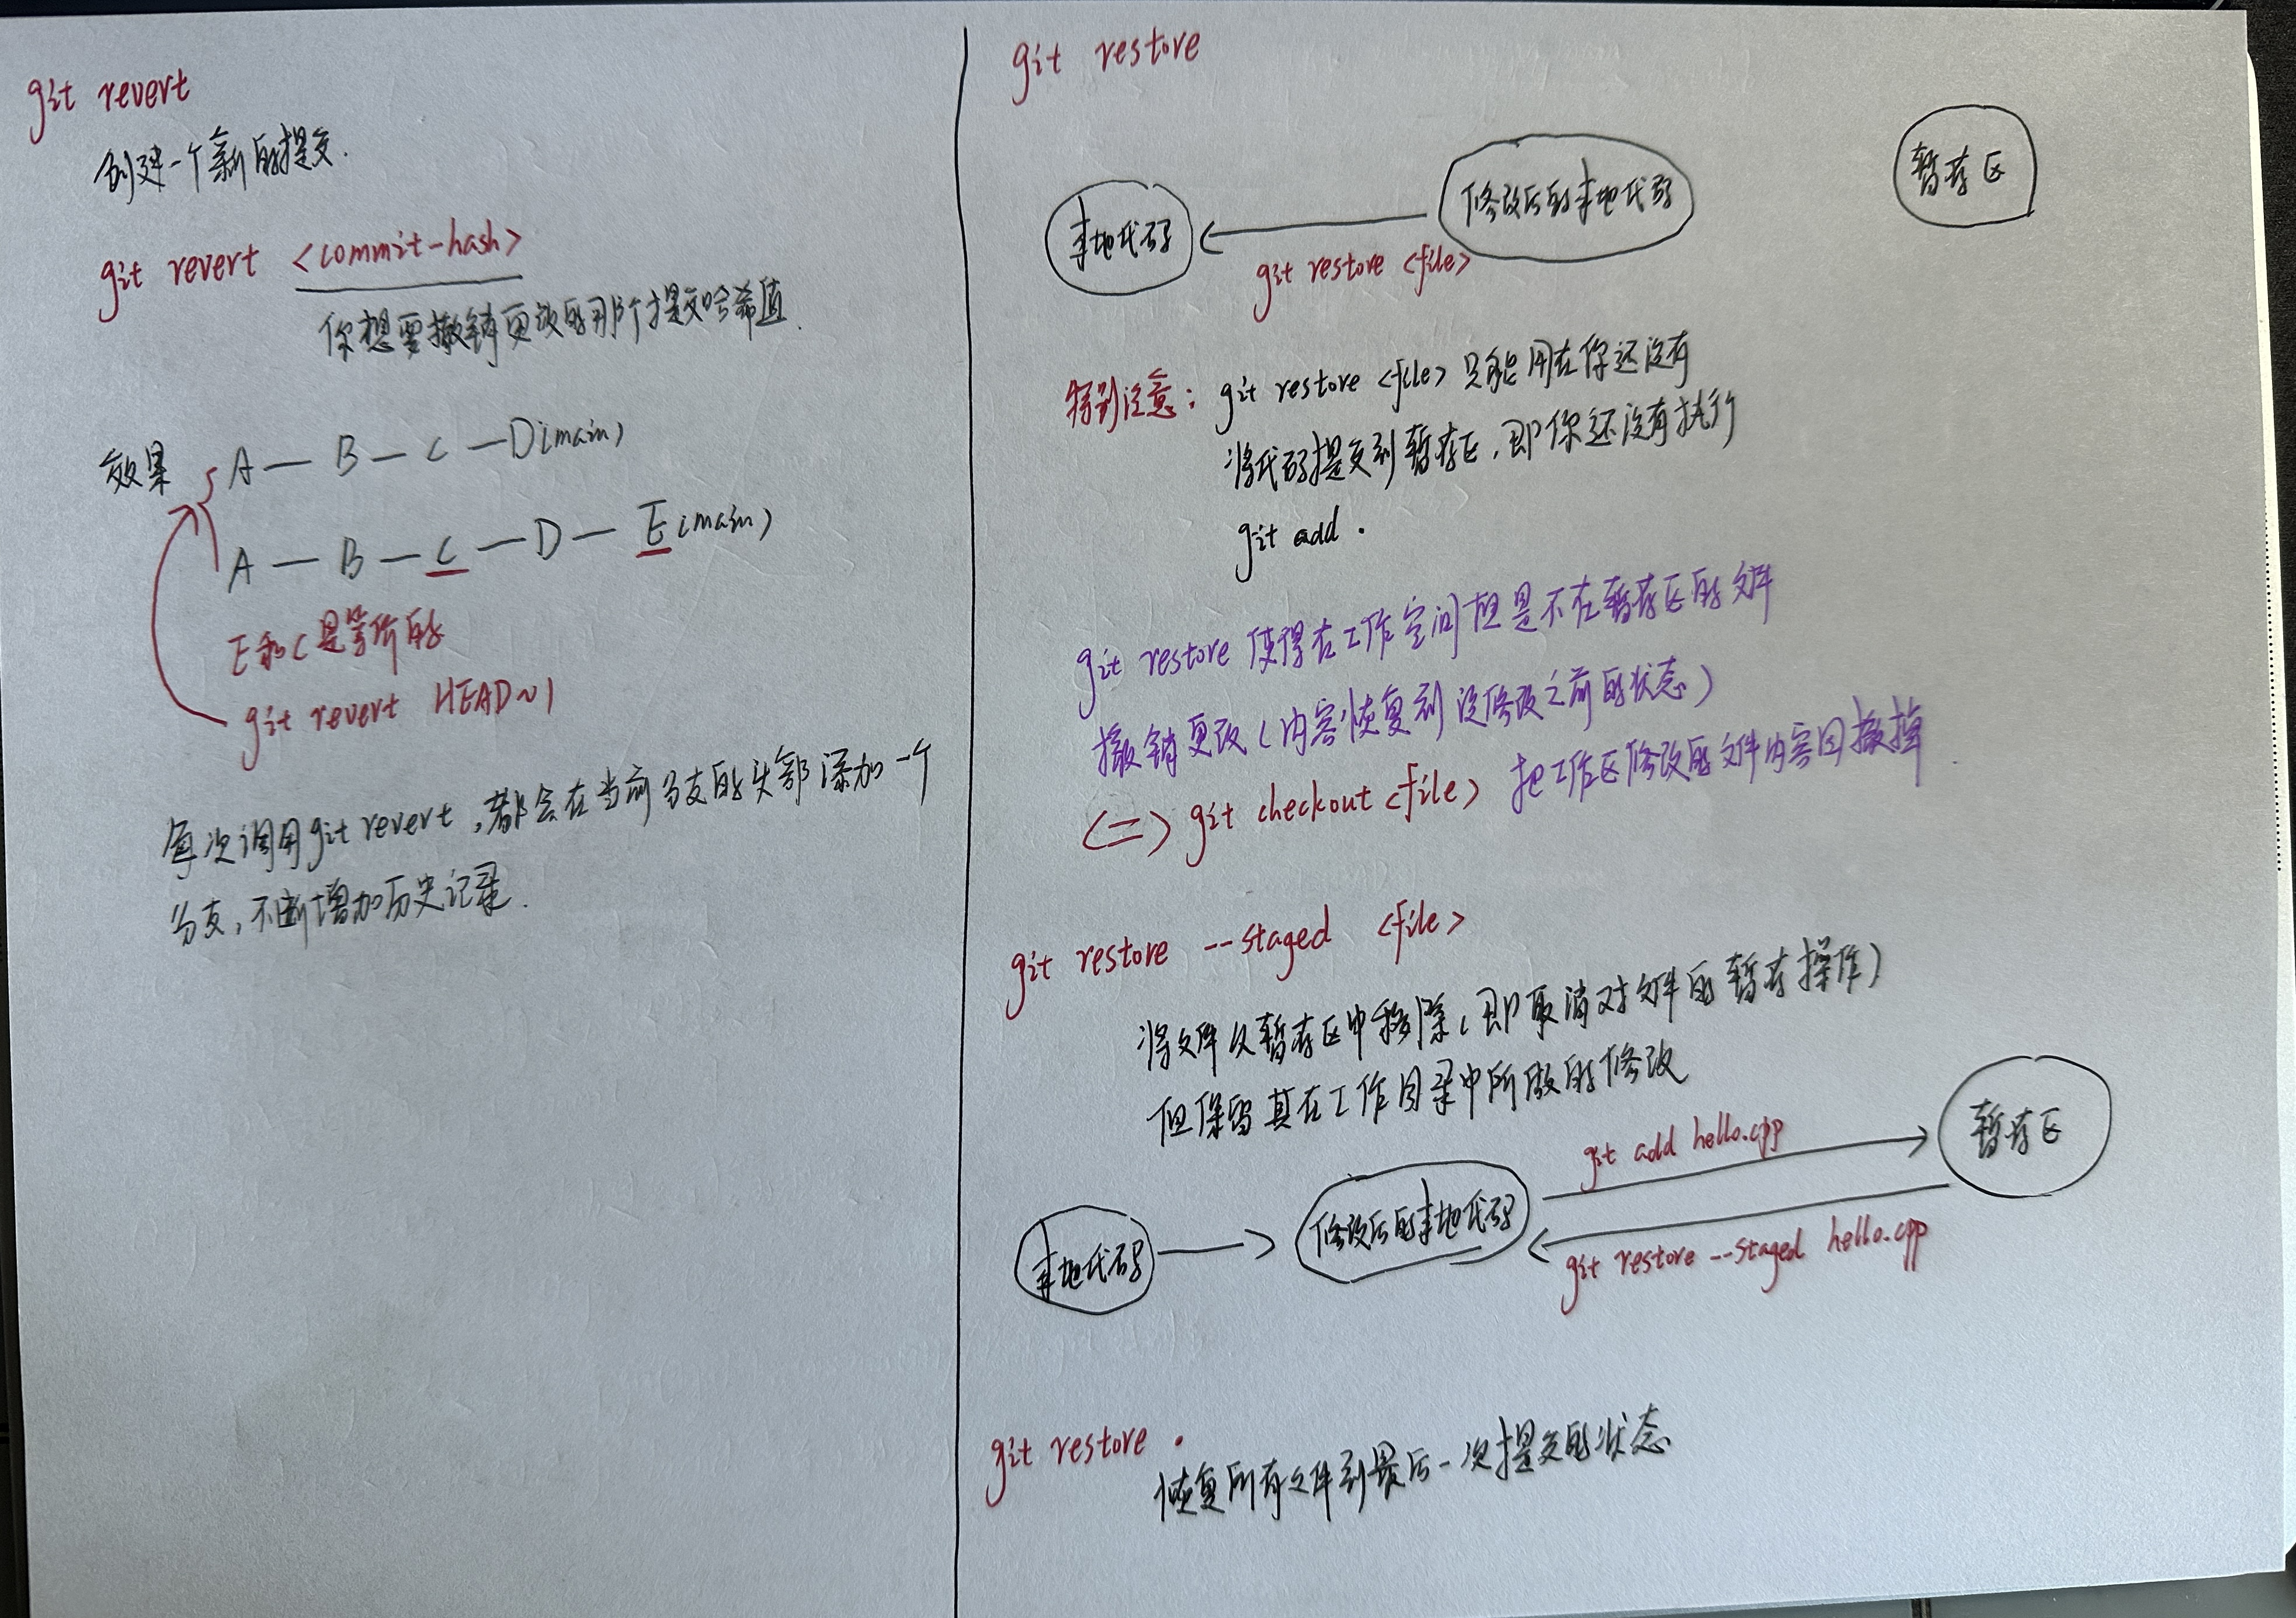 git revert
创建一个新的提交.
git revert <commit-hash>
你想要撤销更改的那个提交哈希值.
效果
A — B — C — D(main)
A — B — C — D — E(main)
E和C是等价的
git revert HEAD~1
每次调用git revert,都会在当前分支的头部添加一个
分支,不断增加历史记录.
git restore
本地代码
修改后的本地代码
暂存区
git restore <file>
特别注意: git restore <file> 只能用在你还没有
将代码提交到暂存区,即你还没有执行
git add .
git restore 使得在工作空间但是不在暂存区的文件
撤销更改(内容恢复到没修改之前的状态)
<=> git checkout <file> 把工作区修改的文件内容回撤掉
git restore --staged <file>
将文件从暂存区中移除(即取消对文件的暂存操作)
但保留其在工作目录中所做的修改
本地代码
修改后的本地代码
git add hello.cpp
暂存区
git restore --staged hello.cpp
git restore .
恢复所有文件到最后一次提交的状态